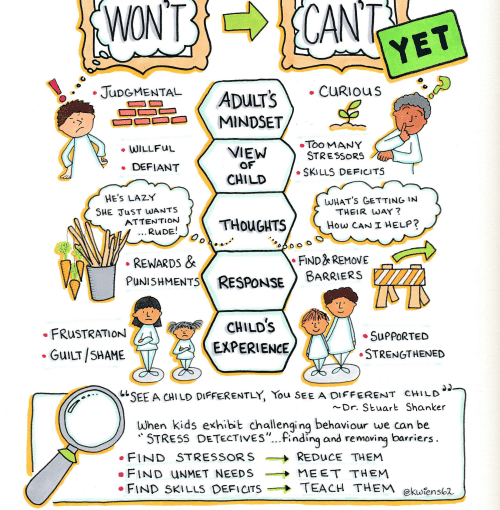 WON'T
CAN'T
YET
• JUDGMENTAL
ADULT'S
MINDSET
• CURIOUS
• WILLFUL
• DEFIANT
VIEW
OF
CHILD
• TOO MANY
STRESSORS
• SKILLS DEFICITS
HE'S LAZY
SHE JUST WANTS
ATTENTION
...RUDE!
THOUGHTS
WHAT'S GETTING IN
THEIR WAY?
HOW CAN I HELP?
• REWARDS &
PUNISHMENTS
RESPONSE
• FIND & REMOVE
BARRIERS
• FRUSTRATION
• GUILT/SHAME
CHILD'S
EXPERIENCE
• SUPPORTED
• STRENGTHENED
"SEE A CHILD DIFFERENTLY, YOU SEE A DIFFERENT CHILD"
~Dr. Stuart Shanker
When kids exhibit challenging behaviour we can be
"STRESS DETECTIVES"...finding and removing barriers.
• FIND STRESSORS → REDUCE THEM
• FIND UNMET NEEDS → MEET THEM
• FIND SKILLS DEFICITS → TEACH THEM
@kwiens62